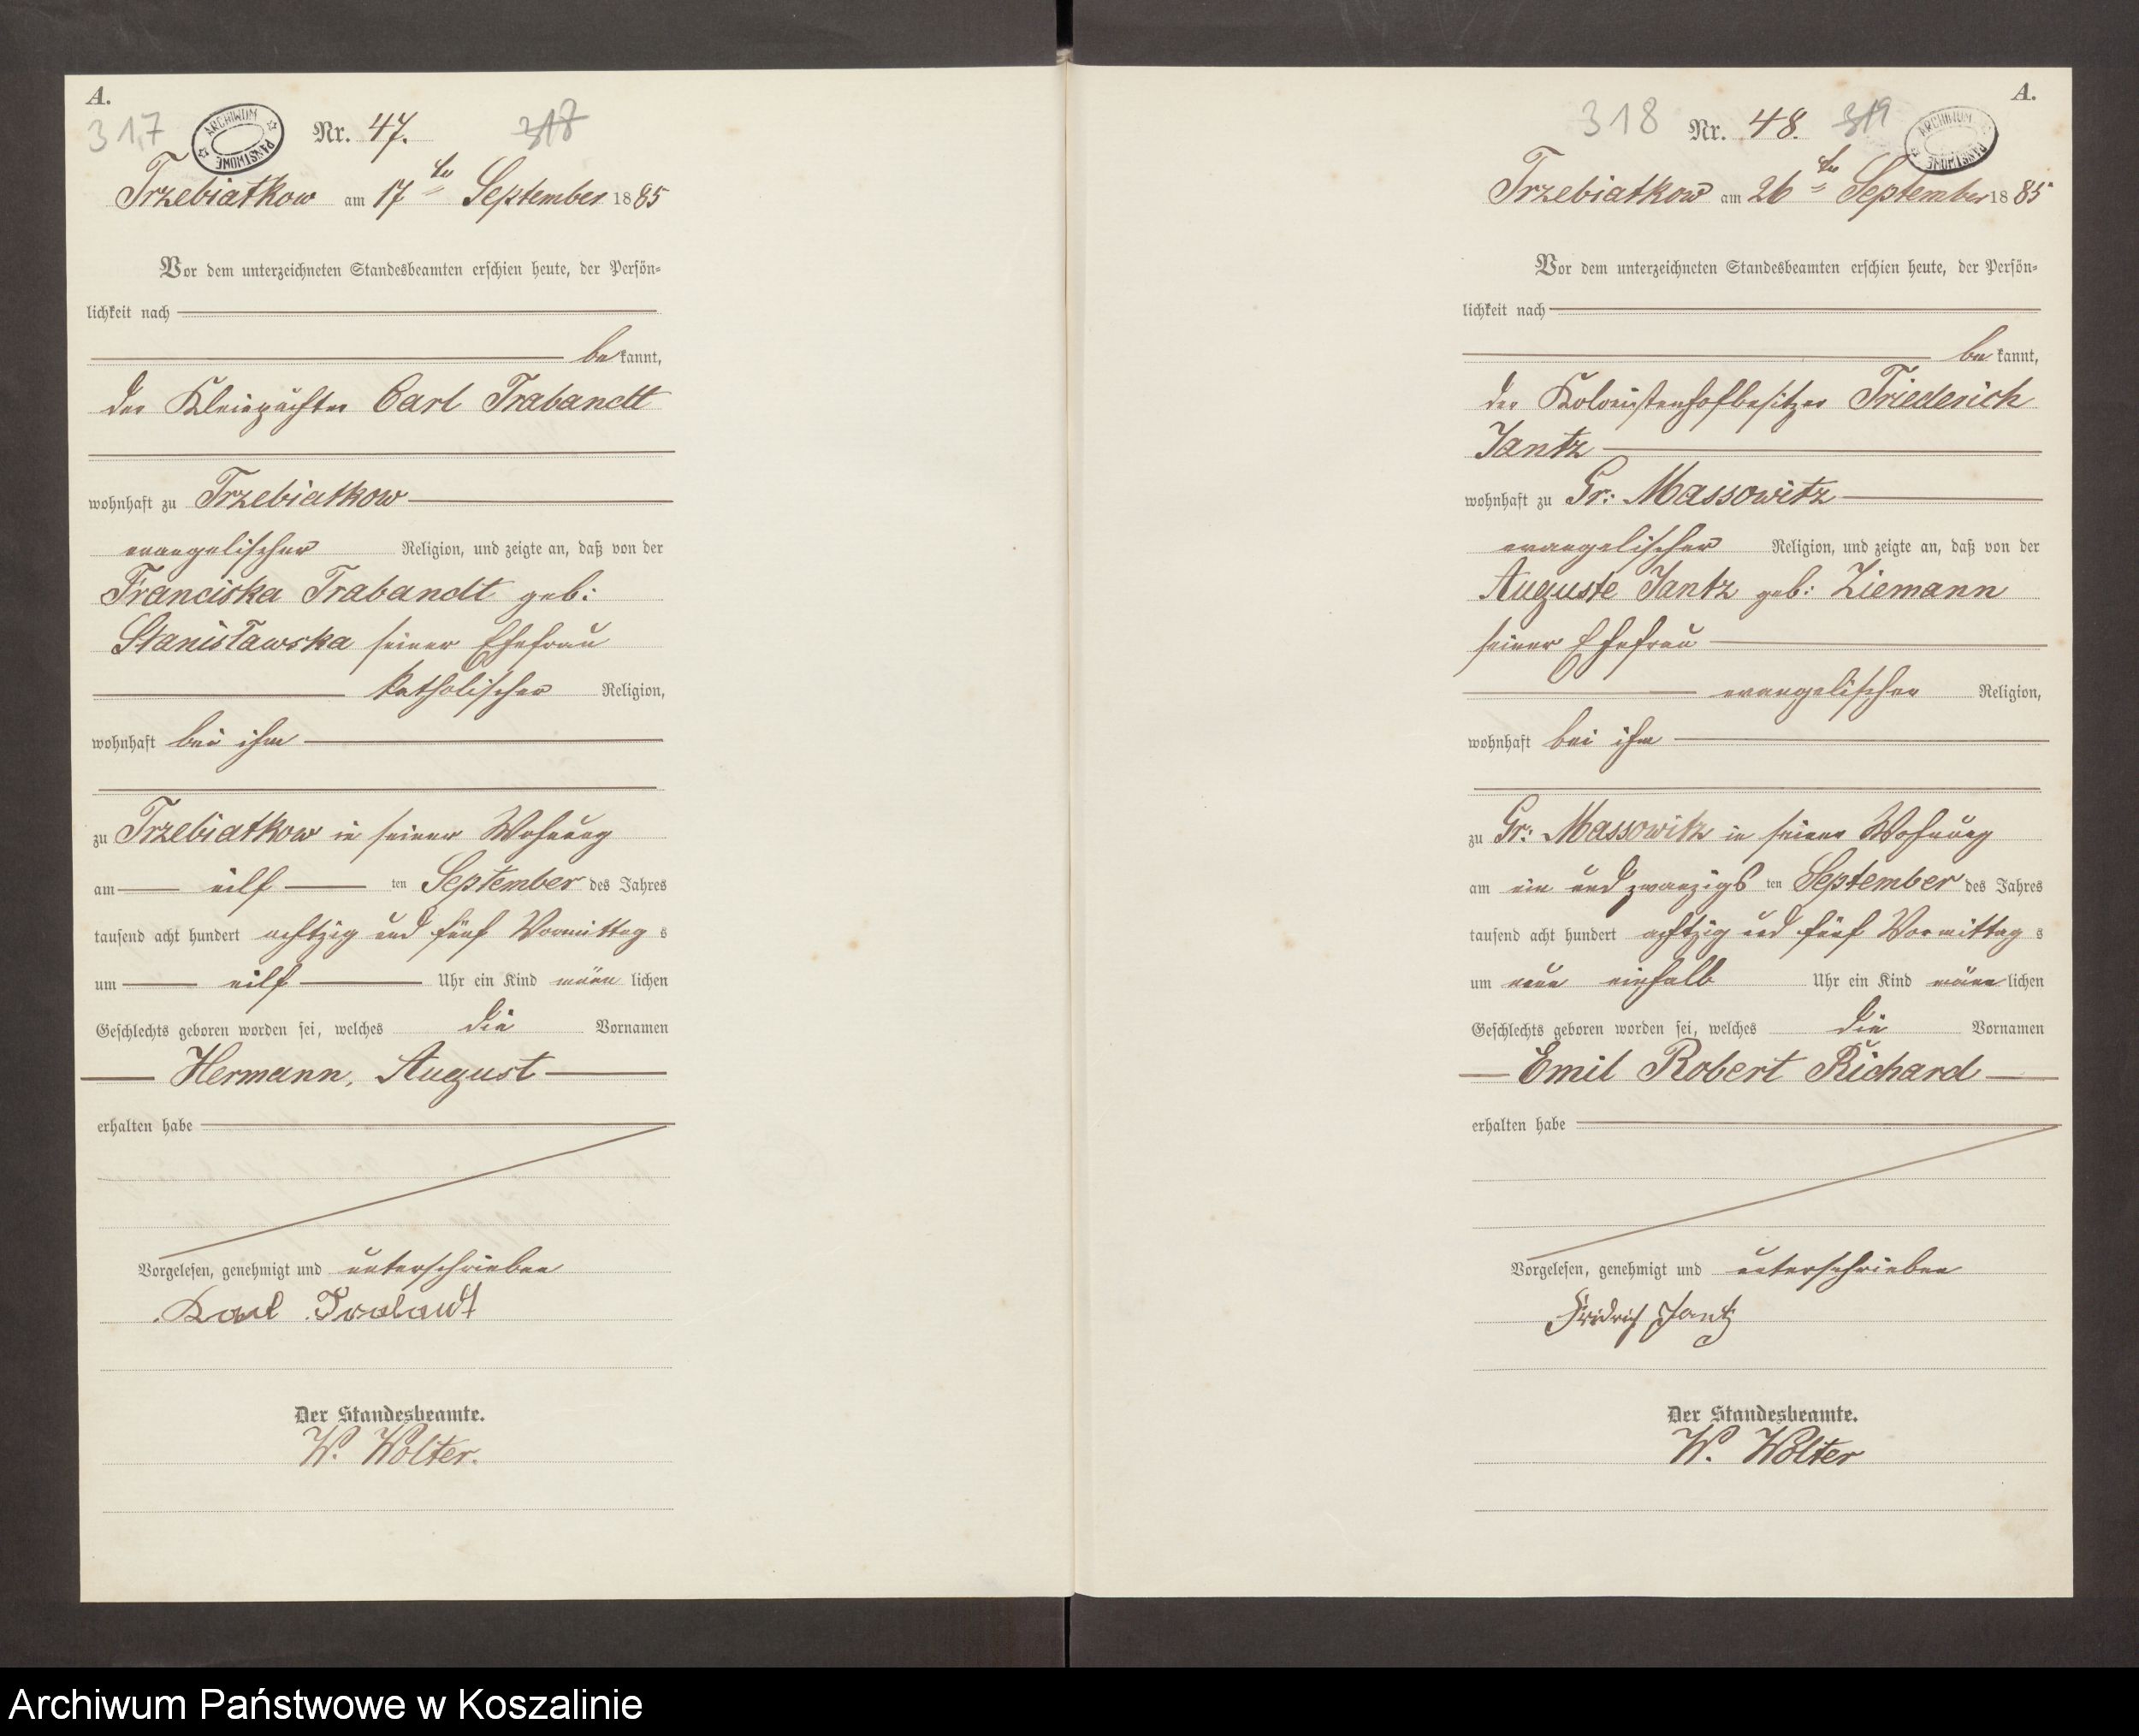 A.
317
ARCHIWUM PAŃSTWOWE
Nr. 47.
318
Trzebiatkow am 17ten September 1885
Vor dem unterzeichneten Standesbeamten erschien heute, der Persön-
lichkeit nach
bekannt,
der Kleinpächter Carl Trabandt
wohnhaft zu Trzebiatkow
evangelischer Religion, und zeigte an, daß von der
Franciska Trabandt geb:
Stanisławska seiner Ehefrau
katholischer Religion,
wohnhaft bei ihm
zu Trzebiatkow in seiner Wohnung
am eilf ten September des Jahres
tausend acht hundert achtzig und fünf Vormittags
um eilf Uhr ein Kind männlichen
Geschlechts geboren worden sei, welches die Vornamen
Hermann, August
erhalten habe
Vorgelesen, genehmigt und unterschrieben
Karl Trabant
Der Standesbeamte.
W. Wolter.
A.
318
Nr. 48.
319
ARCHIWUM PAŃSTWOWE
Trzebiatkow am 26ten September 1885
Vor dem unterzeichneten Standesbeamten erschien heute, der Persön-
lichkeit nach
bekannt,
der Kolonistenhofbesitzer Friederich
Jantz
wohnhaft zu Gr: Massowitz
evangelischer Religion, und zeigte an, daß von der
Auguste Jantz geb: Ziemann
seiner Ehefrau
evangelischer Religion,
wohnhaft bei ihm
zu Gr: Massowitz in seiner Wohnung
am ein und zwanzigs ten September des Jahres
tausend acht hundert achtzig und fünf Vormittags
um neun einhalb Uhr ein Kind männlichen
Geschlechts geboren worden sei, welches die Vornamen
Emil Robert Richard
erhalten habe
Vorgelesen, genehmigt und unterschrieben
Fridrich Jantz
Der Standesbeamte.
W. Wolter
Archiwum Państwowe w Koszalinie